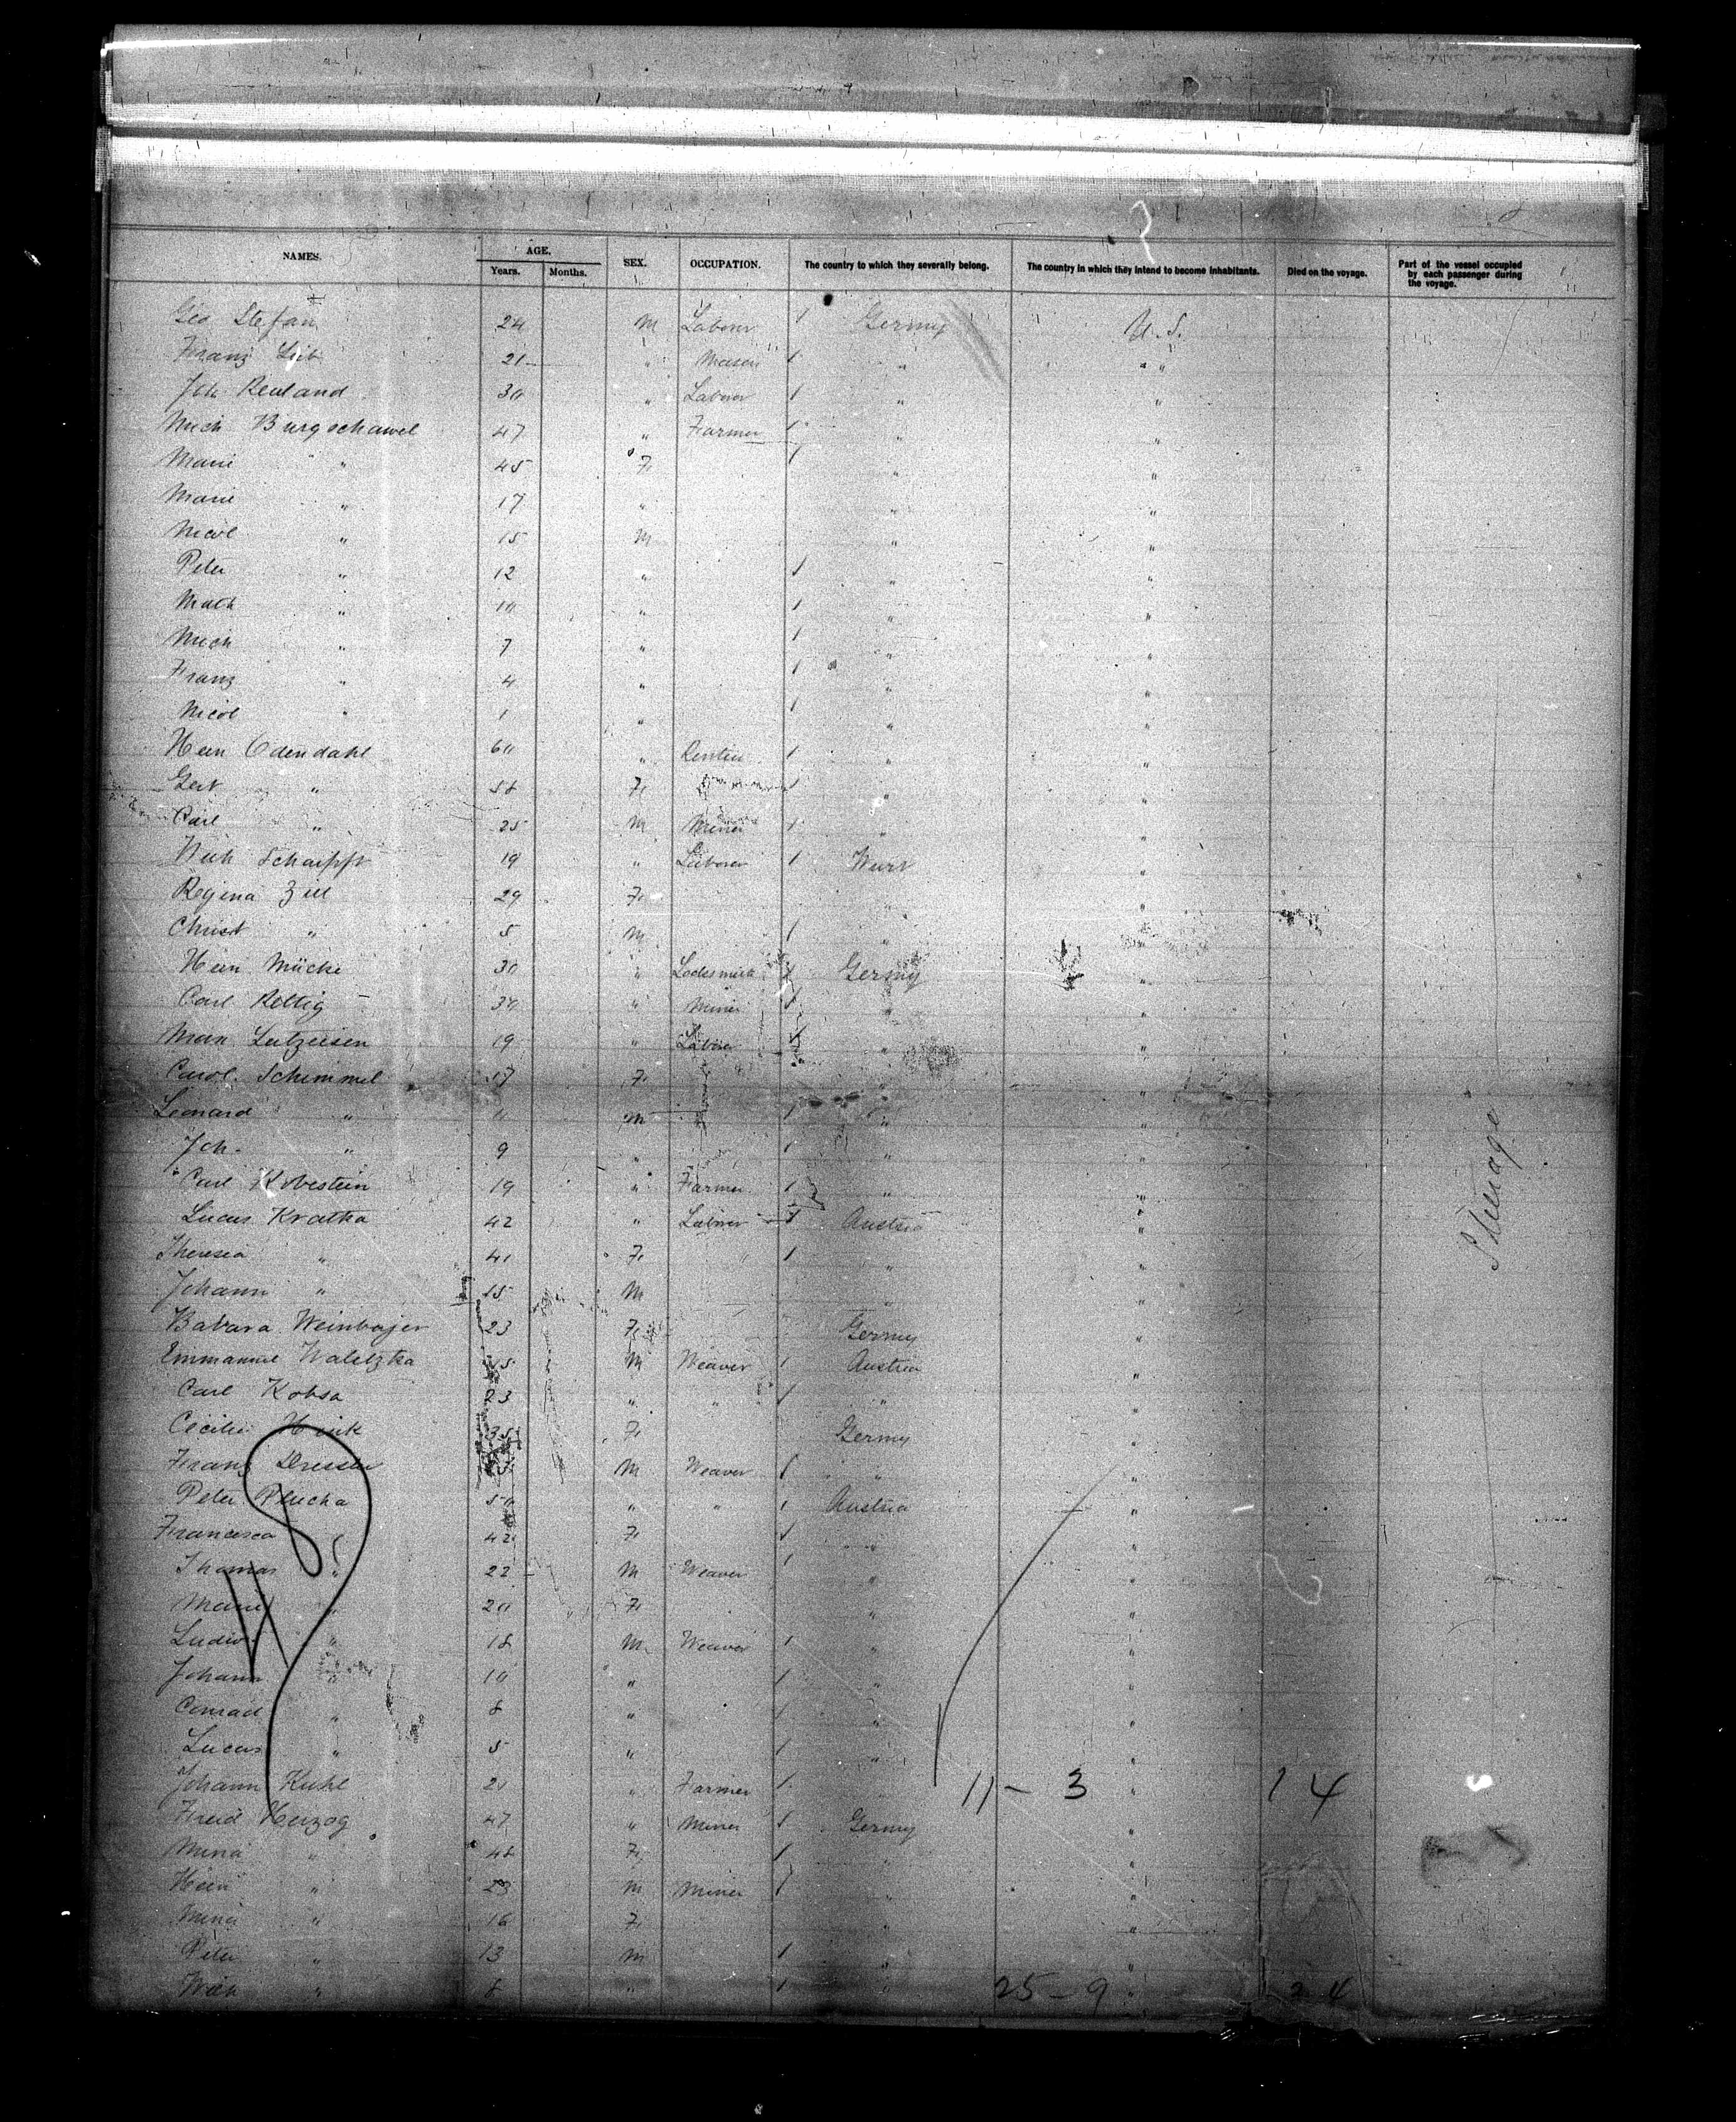 NAMES. AGE. Years. Months. SEX. OCCUPATION. The country to which they severally belong. The country in which they intend to become inhabitants. Died on the voyage. Part of the vessel occupied by each passenger during the voyage.
Geo Stefan 24 M Laborer 1 Germy U.S.
Franz 21 " Mason 1 " "
Joh Reuland 30 " Laborer 1 " "
Mich Burgschawel 47 " Farmer 1 " "
Marie " 45 F. 1 " "
Marie " 17 " " "
Nicol " 15 M " "
Peter " 12 " 1 " "
Math " 10 " 1 " "
Mich " 7 " 1 " "
Franz " 4 " 1 " "
Nicol " 1 " 1 " "
Hein Odendahl 60 " Rentier 1 " "
Gert " 58 F. 1 " "
Carl " 25 M Miner 1 " "
Schaipft 19 " Laborer 1 Wurt "
Regina Zill 29 F. " "
Christ " 5 M 1 " "
Hein Mücke 30 " Locksmith 1 Germy "
Carl Rettig 30 " Miner 1 " "
Max Lutzeisen 19 " Laborer " "
Carol. Schimmel 17 F. " "
Leonard " 11 M 1 " "
Joh. " 9 " 1 " "
Carl Kobestein 19 " Farmer 1 " "
Lucas Kratka 42 " Laborer 1 Austria "
Theresia " 41 F. 1 " "
Johann " 15 M " "
Babara Weinbajer 23 F. Germy "
Emmanuel Walitzka M Weaver 1 Austria "
Carl Kobsa 23 " " 1 " "
Cecilie 35 F. Germy "
Franz Dressler M Weaver 1 " "
Peter Plucha 50 " " 1 Austria "
Francesca " 42 F. 1 " "
Thomas " 22 M Weaver 1 " "
Marie " 20 F. " "
Ludwig " 18 M. Weaver 1 " "
Johann " 10 " 1 " "
Conrad " 8 " 1 " "
Lucas " 5 " 1 " "
Johann Kuhl 21 " Farmer 1 11 - 3 " 1 4
Freid Herzog 47 " Miner 1 Germy "
Mina " 48 F. 1 " "
Hein " 23 M Miner 1 " "
Mina " 16 F. " "
Peter " 13 M 1 " "
" 8 " 1 " 25 - 9 " 2 4
Steerage